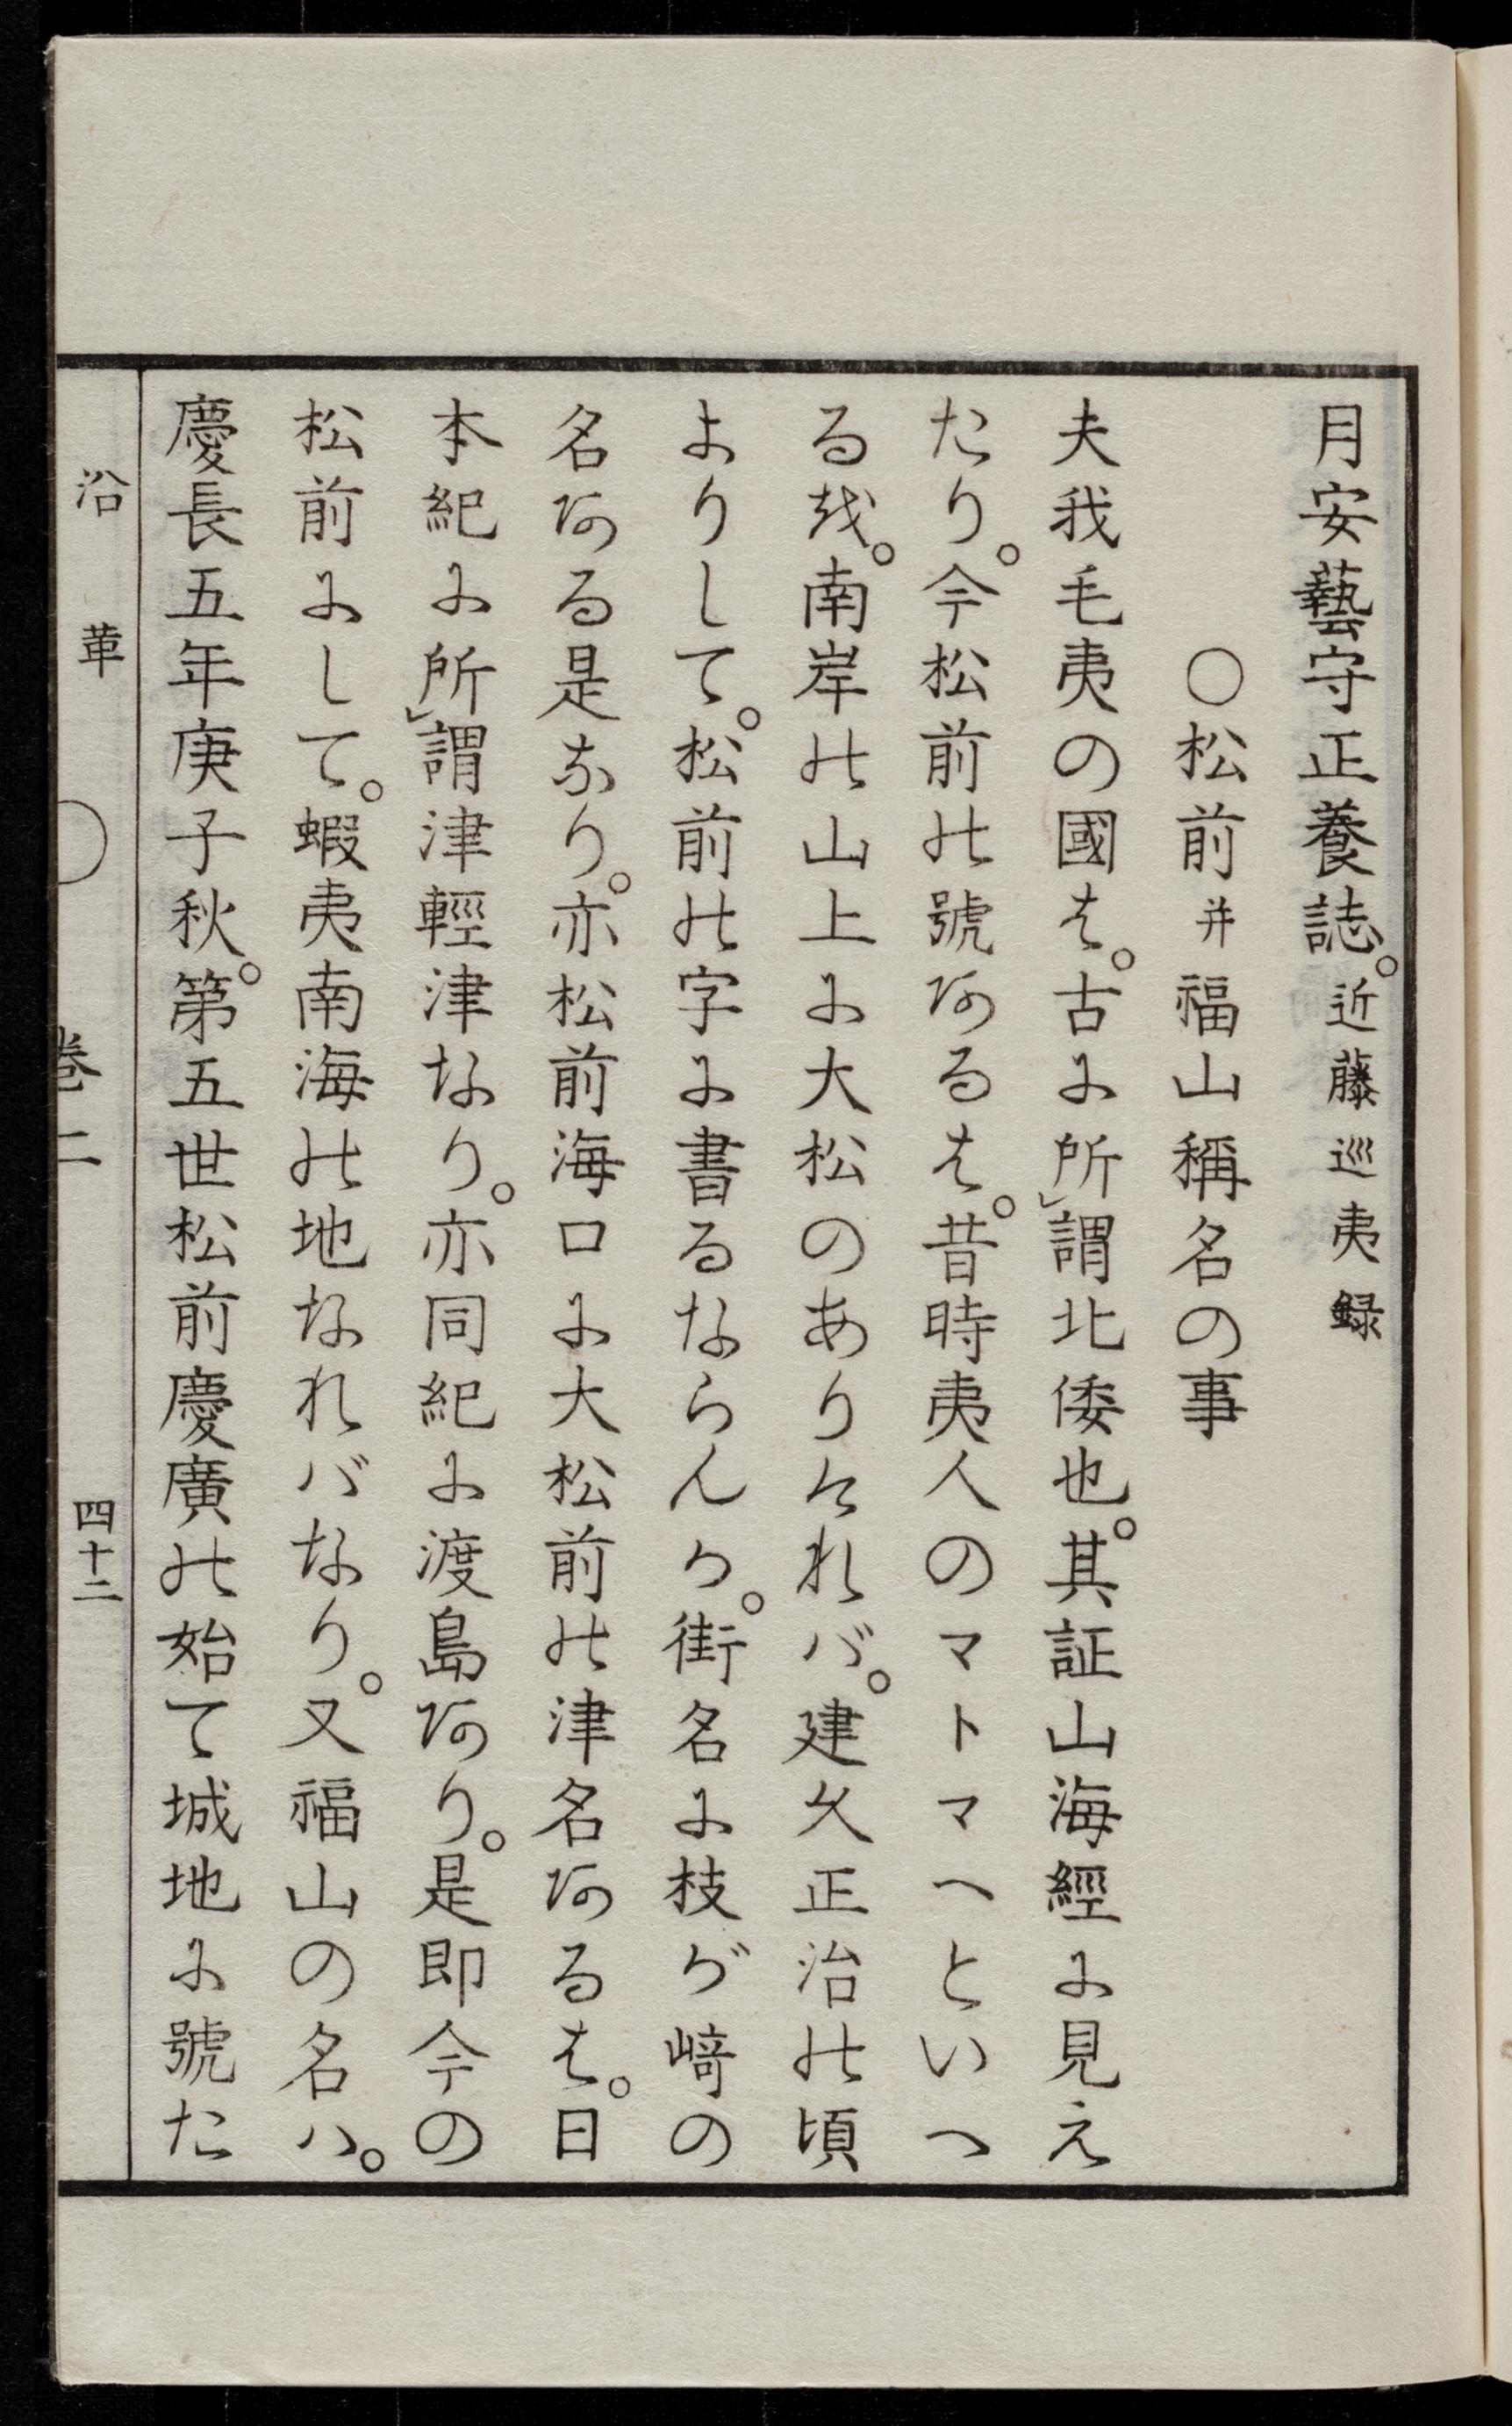 月安藝守正養誌。近藤巡夷録
○松前并福山稱名の事
夫我毛夷の國は。古に所謂北倭也。其証山海經に見え
たり。今松前の號あるは。昔時夷人のマトマヘといへ
るを。南岸の山上に大松のありけれバ。建久正治の頃
よりして。松前の字に書るならんか。街名に枝が﨑の
名ある是なり。亦松前海口に大松前の津名あるは。日
本紀に所謂津輕津なり。亦同紀に渡島あり。是即今の
松前にして。蝦夷南海の地なれバなり。又福山の名ハ。
慶長五年庚子秋。第五世松前慶廣の始て城地に號た
沿革 ○ 卷二 四十二